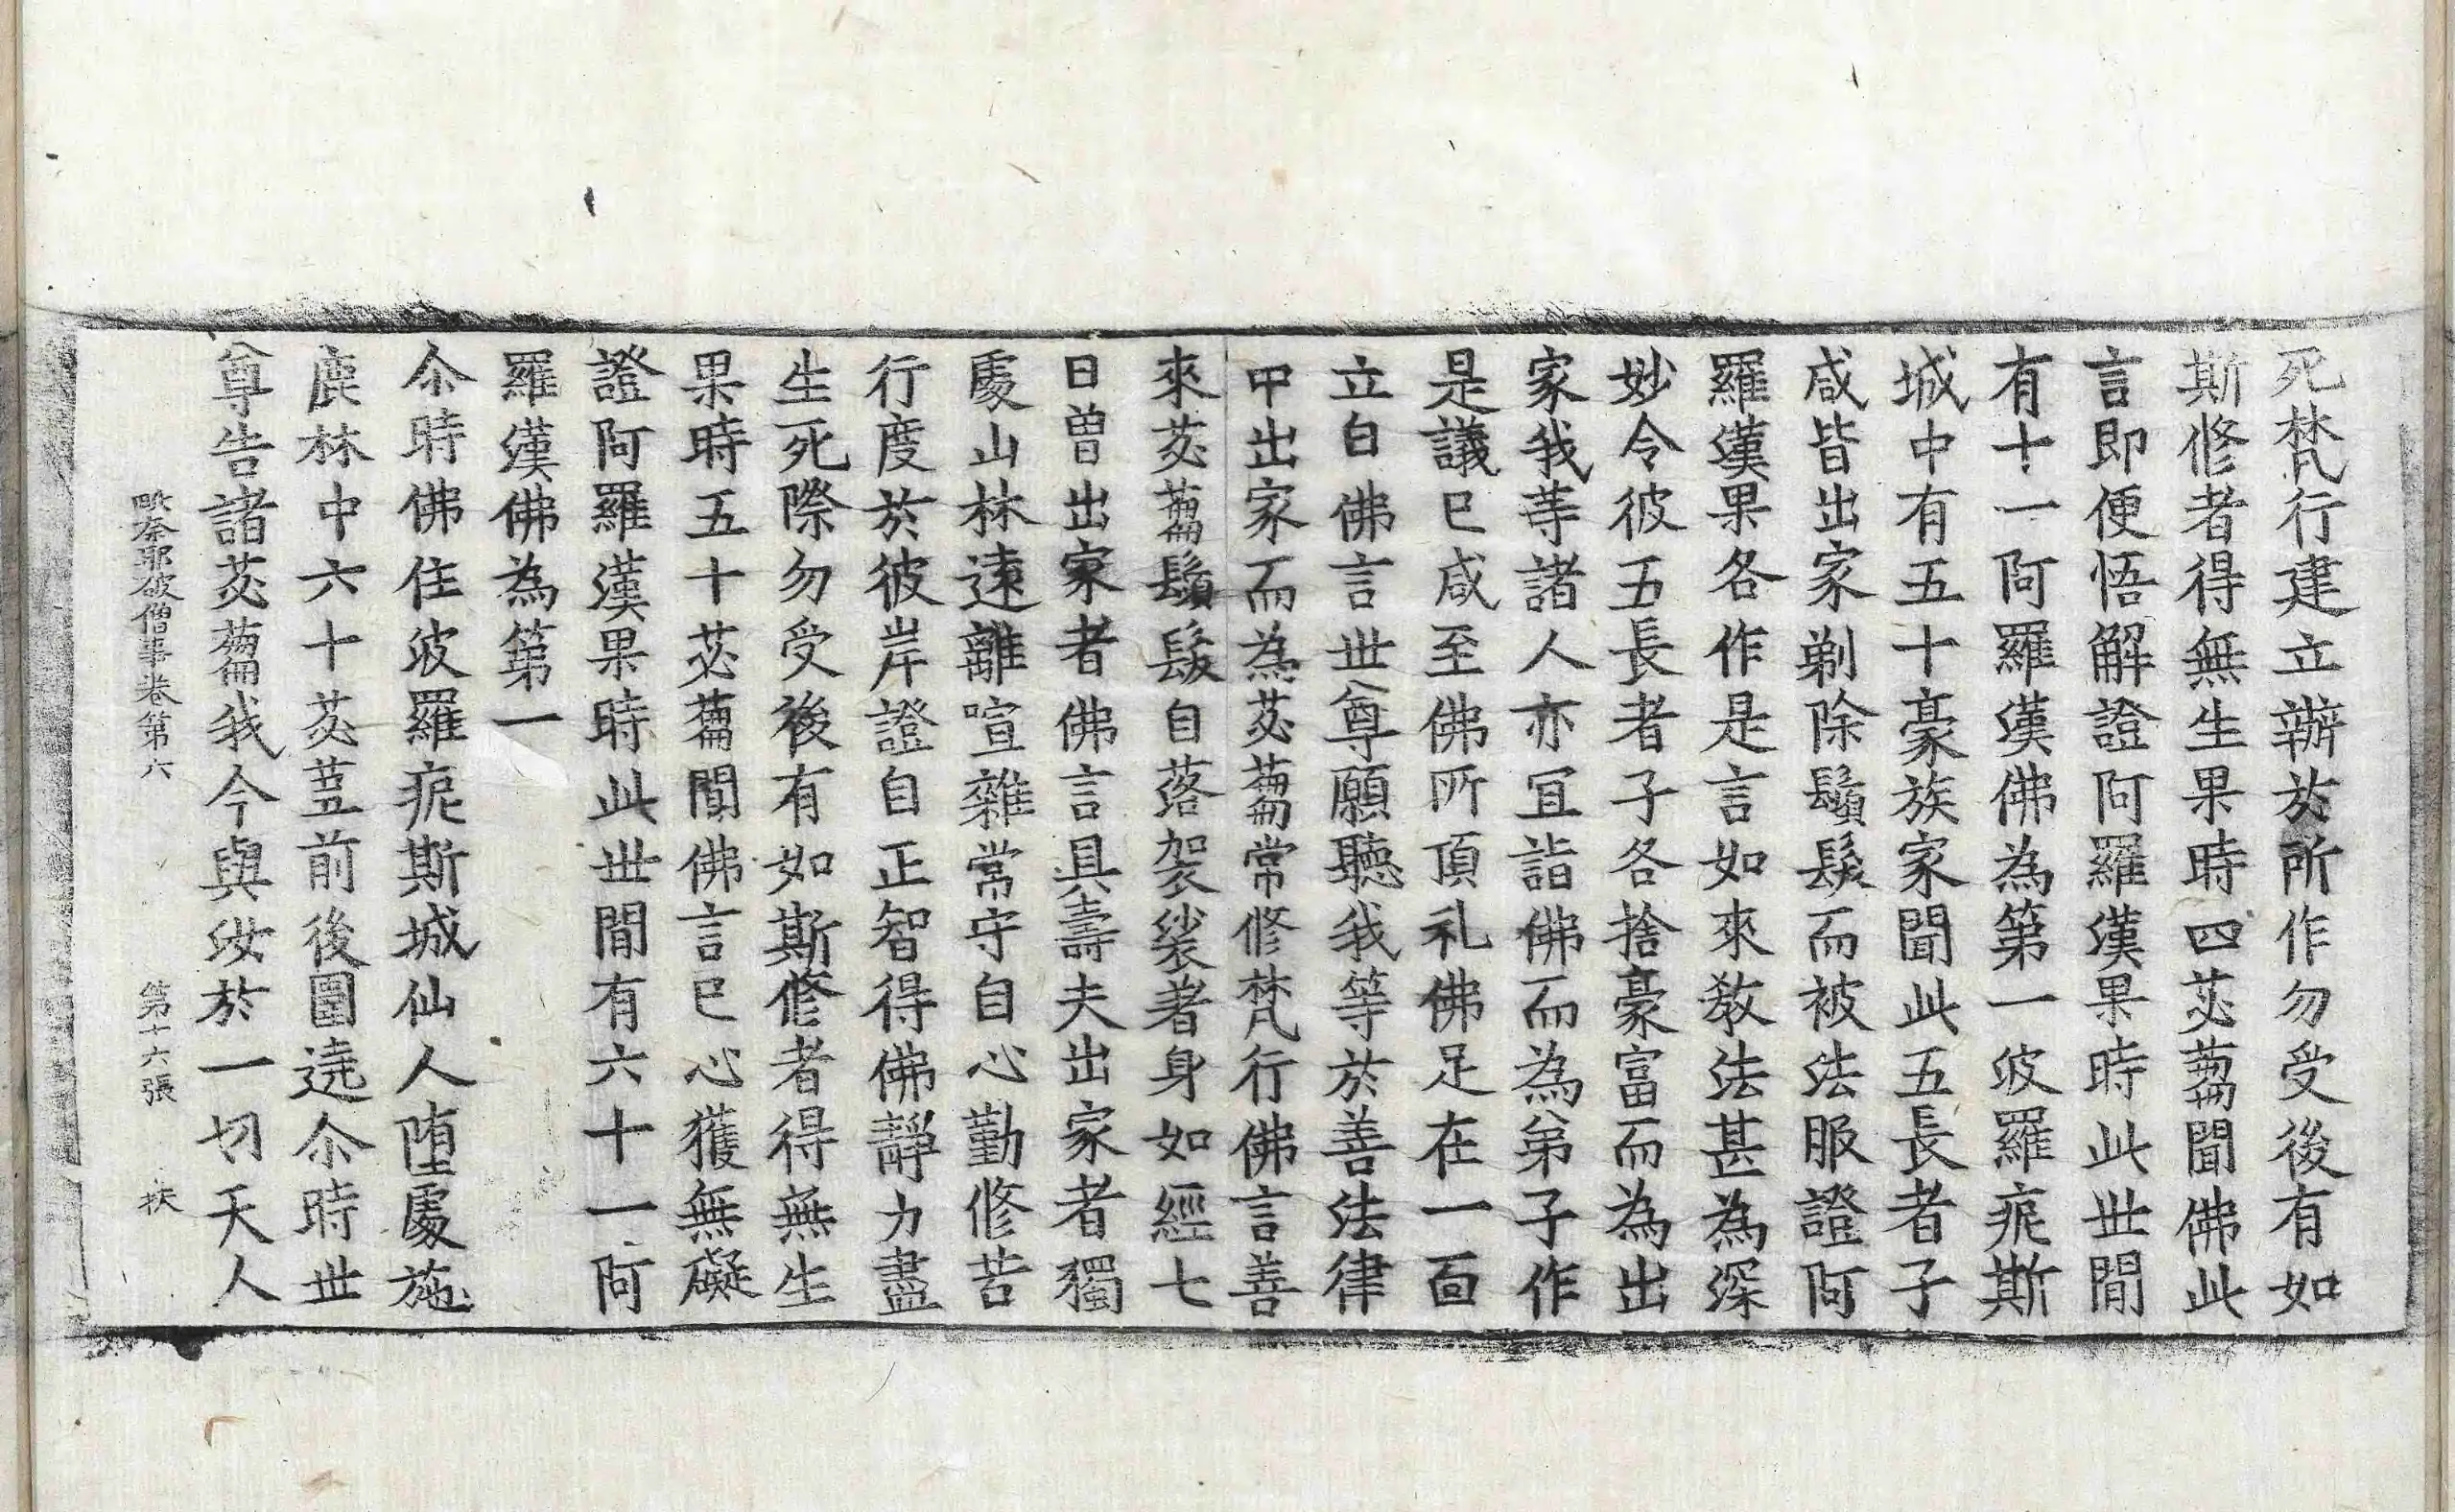 死梵行建立辦於所作勿受後有如
斯修者得無生果時四苾蒭聞佛此
言即便悟解證阿羅漢果時此世間
有十一阿羅漢佛為第一彼羅痆斯
城中有五十豪族家聞此五長者子
咸皆出家剃除鬚髮而被法服證阿
羅漢果各作是言如來教法甚為深
妙令彼五長者子各捨豪富而為出
家我等諸人亦宜詣佛而為弟子作
是議已咸至佛所頂礼佛足在一面
立白佛言世尊願聽我等於善法律
中出家而為苾蒭常修梵行佛言善
來苾蒭鬚髮自落袈裟著身如經七
日曾出家者佛言具壽夫出家者獨
處山林遠離喧雜常守自心勤修苦
行度於彼岸證自正智得佛靜力盡
生死際勿受後有如斯修者得無生
果時五十苾蒭聞佛言已心獲無礙
證阿羅漢果時此世間有六十一阿
羅漢佛為第一
尒時佛住波羅痆斯城仙人堕處施
鹿林中六十苾蒭前後圍遶尒時世
尊告諸苾蒭我今與汝於一切天人
破僧事卷第六 第十六張 扶